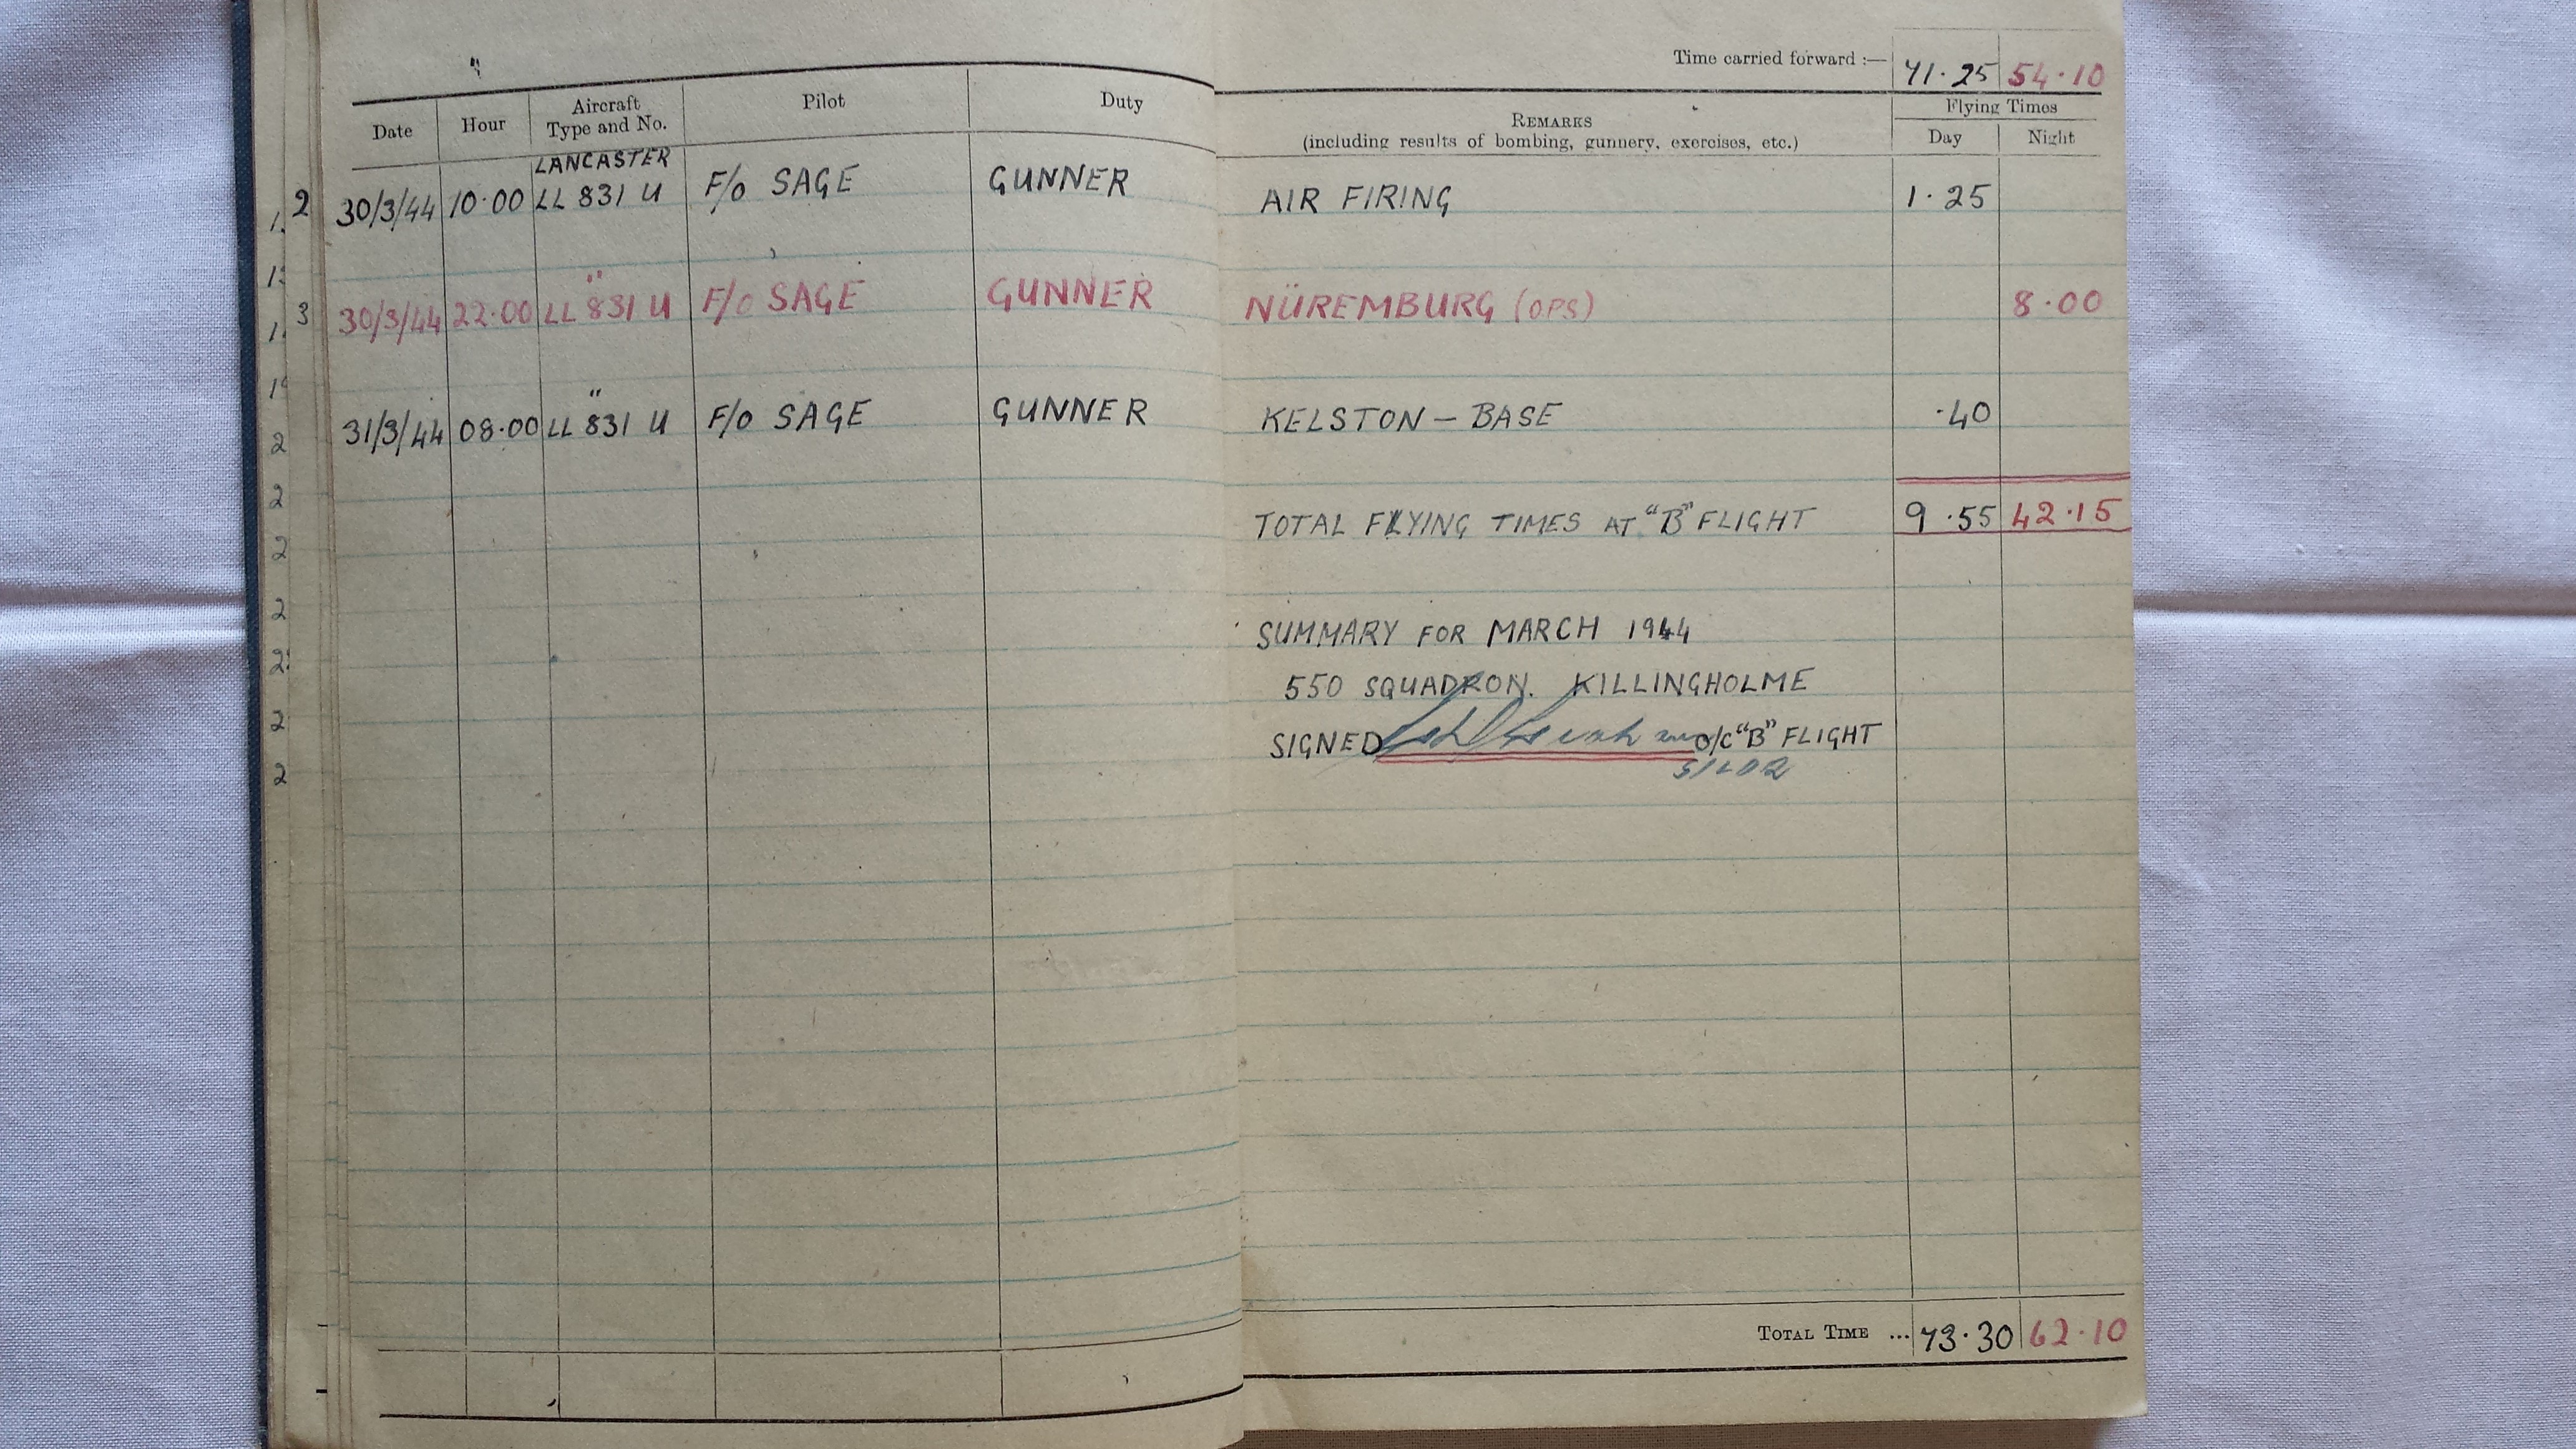 Time carried forward :— 71·25 54·10
Date Hour Aircraft Type and No. Pilot Duty REMARKS (including results of bombing, gunnery, exercises, etc.) Flying Times Day Night
LANCASTER
2 30/3/44 10·00 LL 831 U F/O SAGE GUNNER AIR FIRING 1·25
3 30/3/44 22·00 " LL 831 U F/O SAGE GUNNER NÜREMBURG (OPS) 8·00
31/3/44 08·00 " LL 831 U F/O SAGE GUNNER KELSTON — BASE ·40
TOTAL FLYING TIMES AT "B" FLIGHT 9·55 42·15
SUMMARY FOR MARCH 1944
550 SQUADRON. KILLINGHOLME
SIGNED O/C "B" FLIGHT
S/LDR
TOTAL TIME ... 73·30 62·10